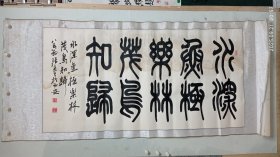 水深
魚極
樂林
茂鳥
知歸
水深魚極樂林
茂鳥知歸